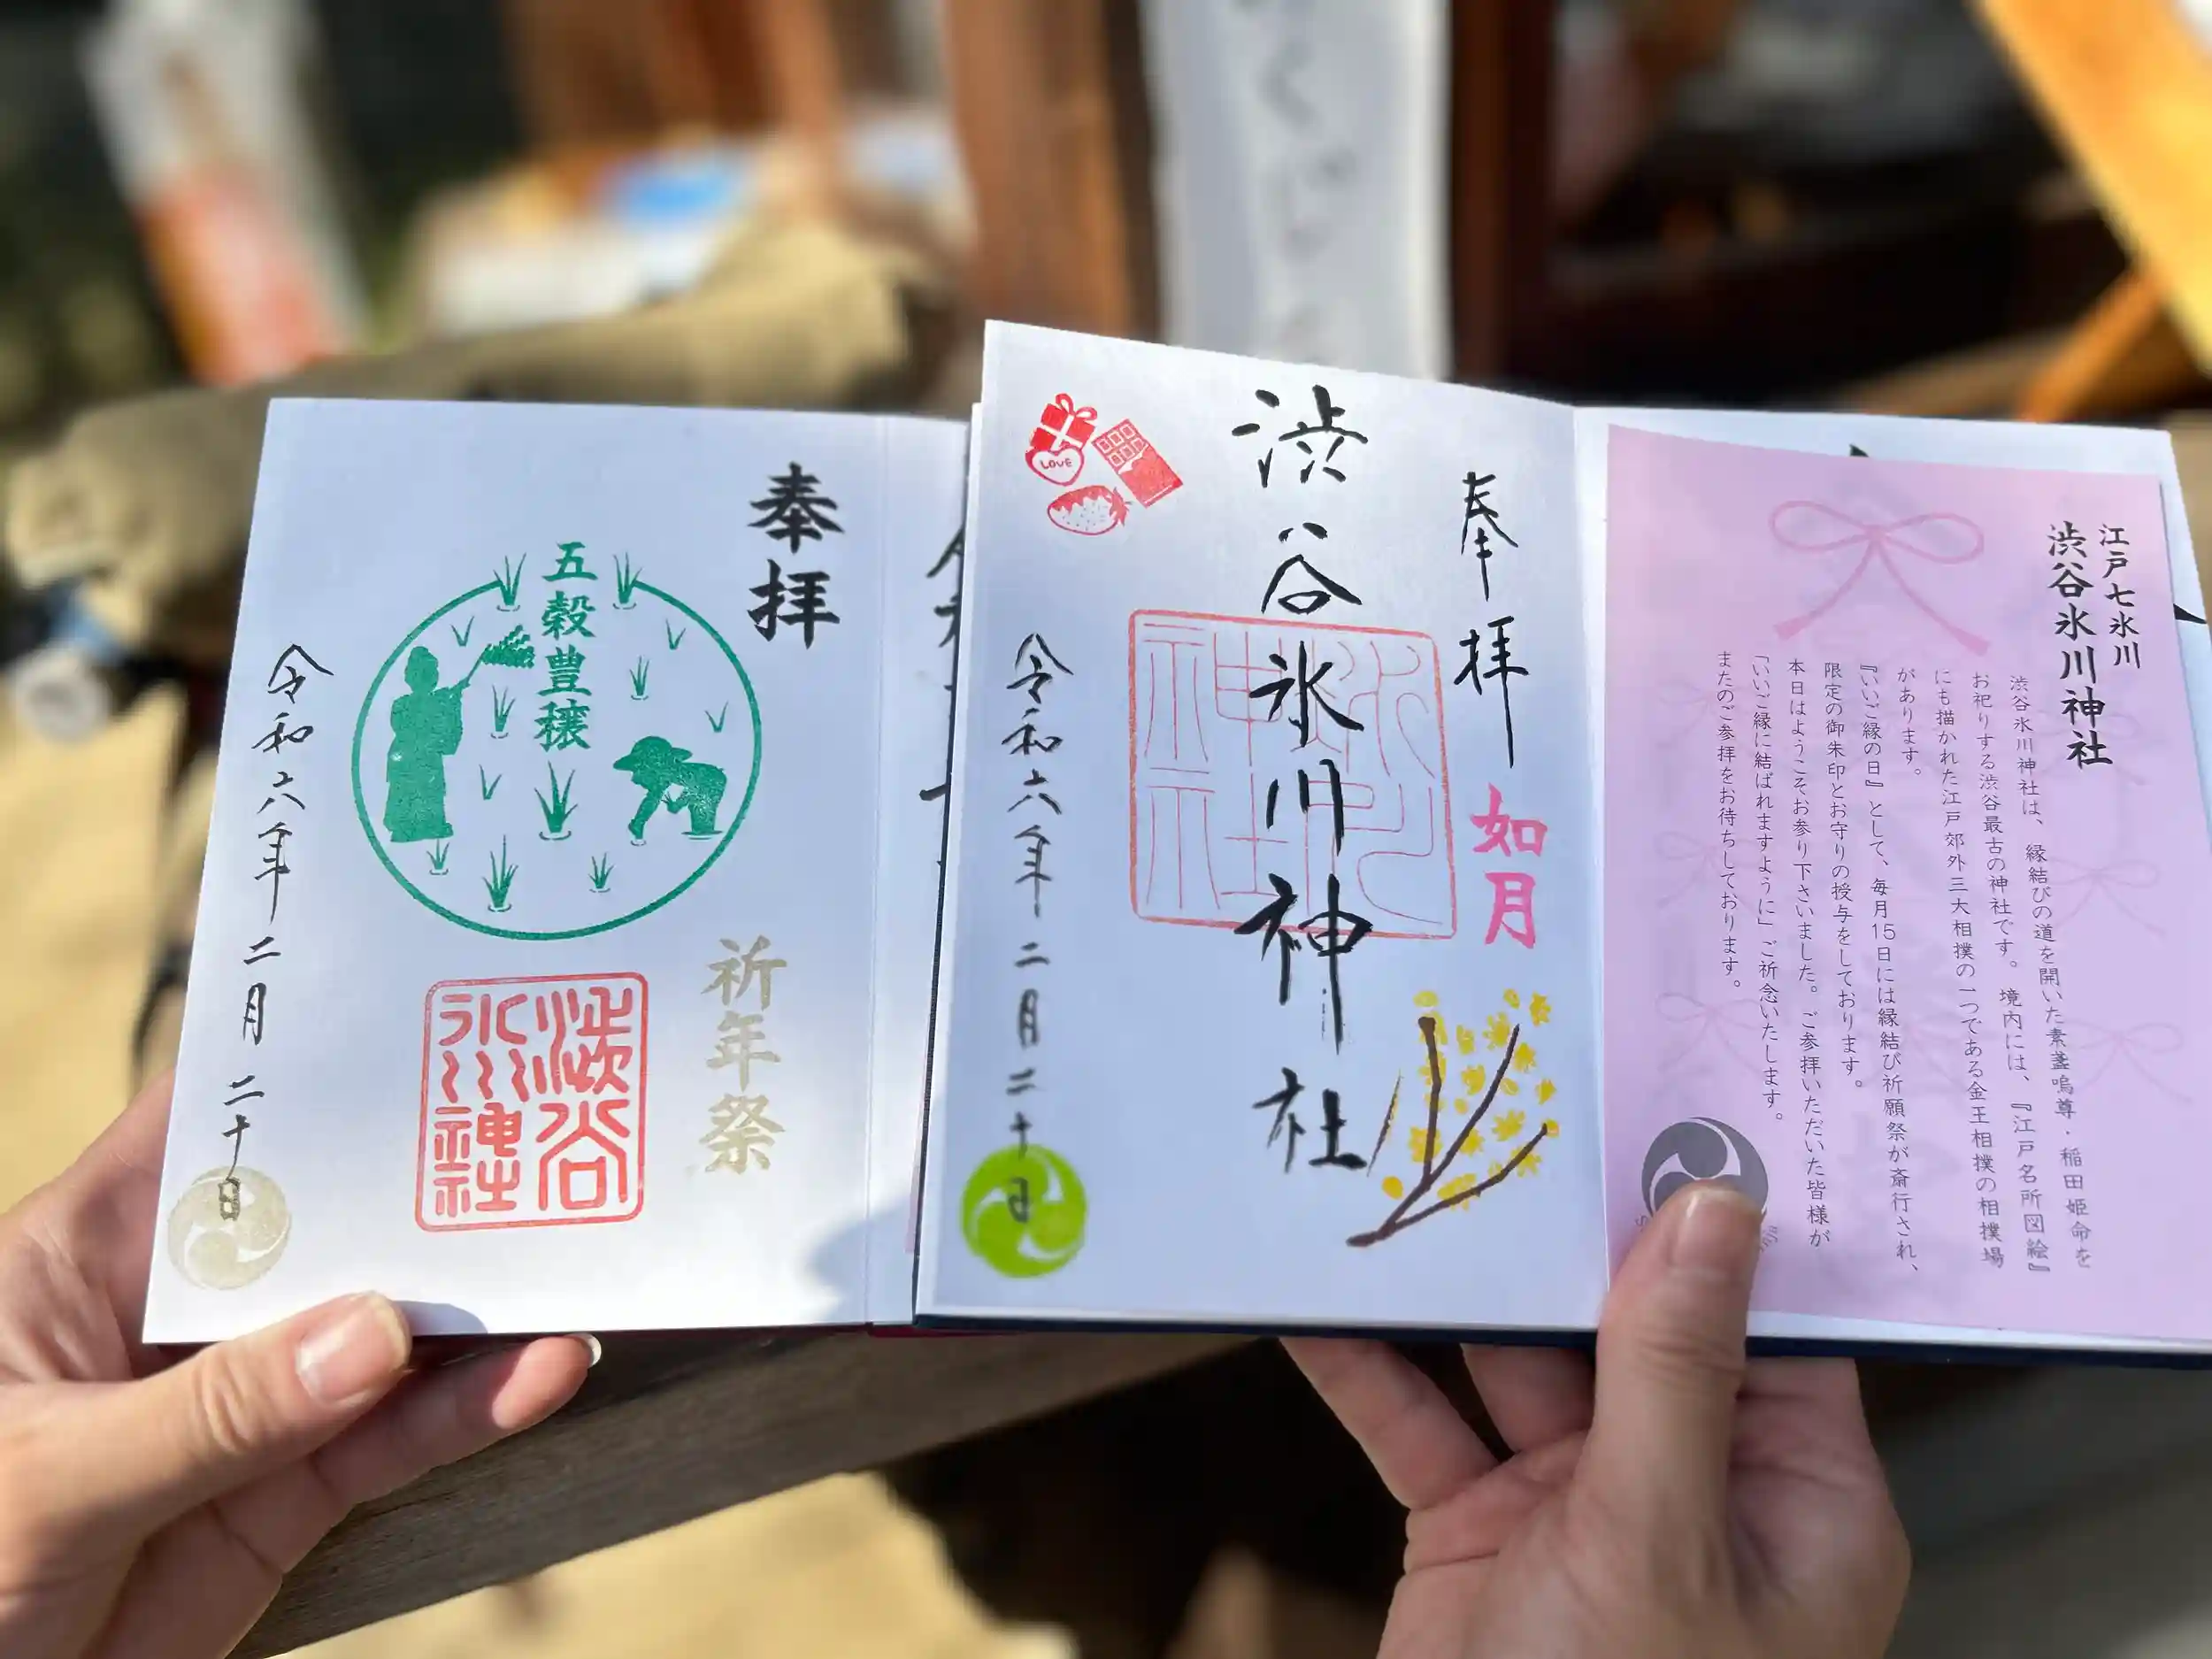 奉拝
五穀豊穣
祈年祭
渋谷
氷川
神社
令和六年二月二十日
奉拝
如月
渋谷氷川神社
LOVE
令和六年二月二十日
江戸七氷川
渋谷氷川神社
渋谷氷川神社は、縁結びの道を開いた素盞嗚尊・稲田姫命を
お祀りする渋谷最古の神社です。境内には、『江戸名所図絵』
にも描かれた江戸郊外三大相撲の一つである金王相撲の相撲場
があります。
『いいご縁の日』として、毎月15日には縁結び祈願祭が斎行され、
限定の御朱印とお守りの授与をしております。
本日はようこそお参り下さいました。ご参拝いただいた皆様が
「いいご縁に結ばれますように」ご祈念いたします。
またのご参拝をお待ちしております。